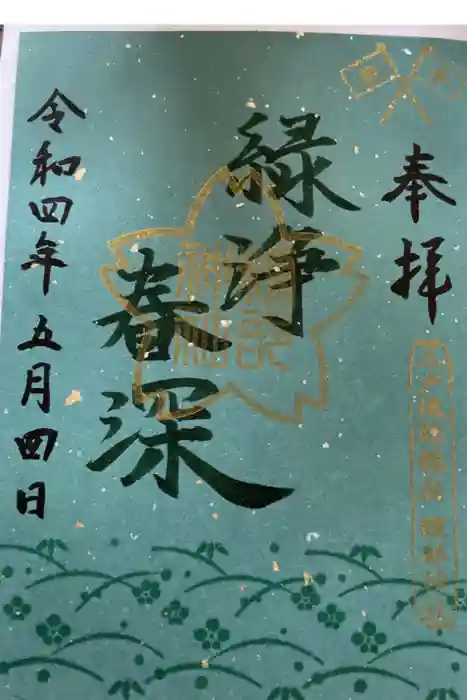 奉拝
緑浄
春深
神社
令和四年 五月四日